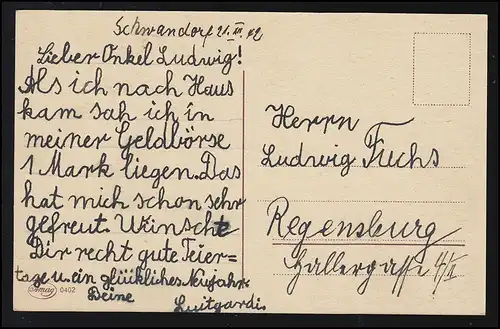 Schwandorf 21. III. 42
Lieber Onkel Ludwig!
Als ich nach Haus
kam sah ich in
meiner Geldbörse
1 Mark liegen. Das
hat mich schon sehr
gefreut. Wünscht
Dir recht gute Feier-
tage u. ein glückliches Neujahr.
Deine Luitgardis
Herrn
Ludwig Fuchs
Regensburg
Hallergasse 4/II
Amag 0402